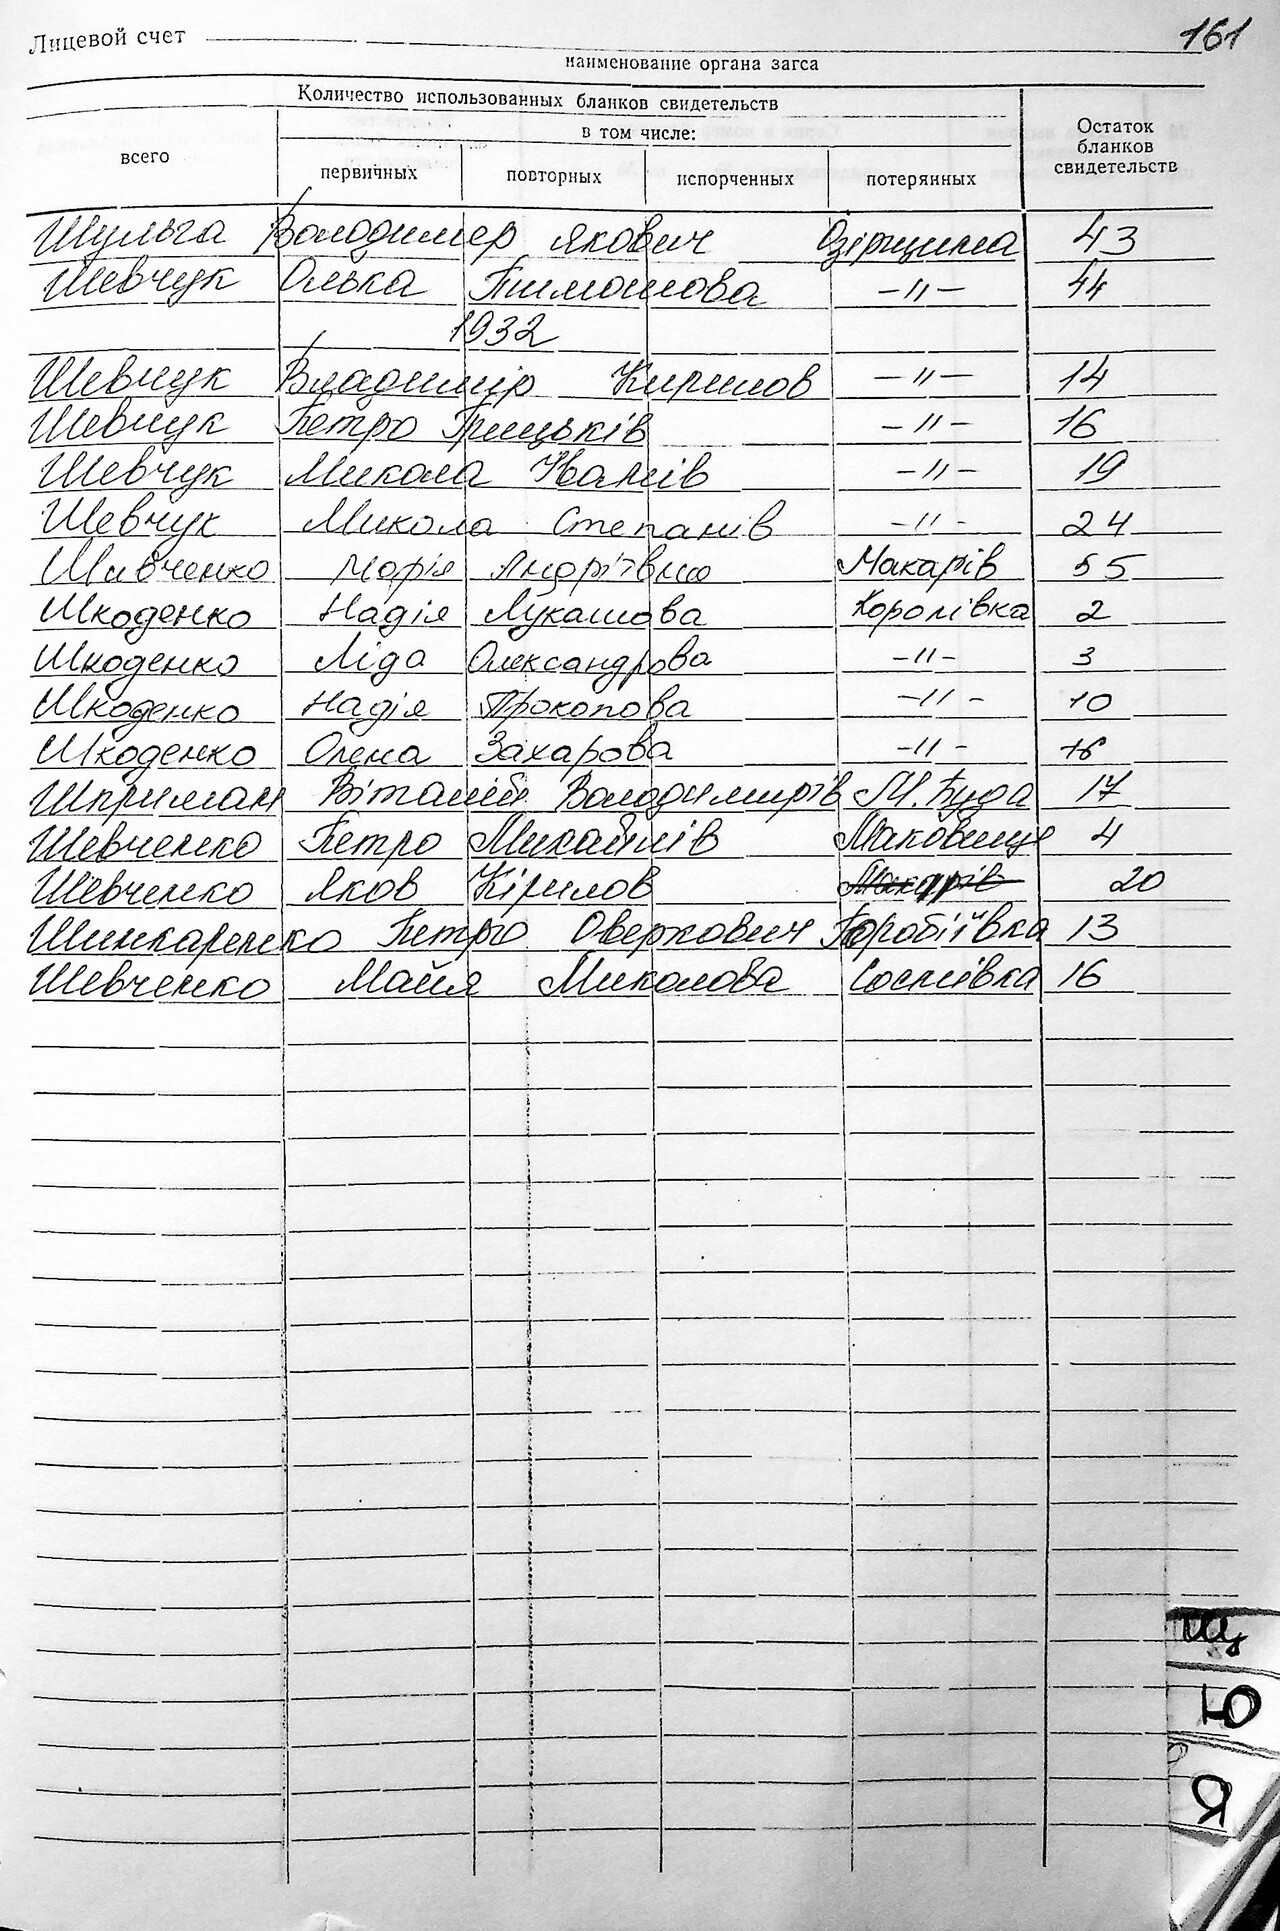 161
Лицевой счет
наименование органа загса
Количество использованных бланков свидетельств
в том числе:
всего
первичных
повторных
испорченных
потерянных
Остаток
бланков
свидетельств
Шульга Володимер Якович Озірщина 43
Шевчук Олька Тимошова -"- 44
1932
Шевчук Владимір Кирилов -"- 14
Шевчук Петро Грицьків -"- 16
Шевчук Микола Іванів -"- 19
Шевчук Микола Степанів -"- 24
Шевченко Марія Андріївна Макарів 55
Шкоденко Надія Лукашова Королівка 2
Шкоденко Ліда Олександрова -"- 3
Шкоденко Надія Прокопова -"- 10
Шкоденко Олена Захарова -"- 16
Шприман Віталій Володимирів М.Буда 17
Шевченко Петро Михайлів Маковище 4
Шевченко Яков Кірилов Макарів 20
Шинкаренко Петро Оверкович Горобіївка 13
Шевченко Майя Миколова Соснівка 16
Щ
Ю
Я